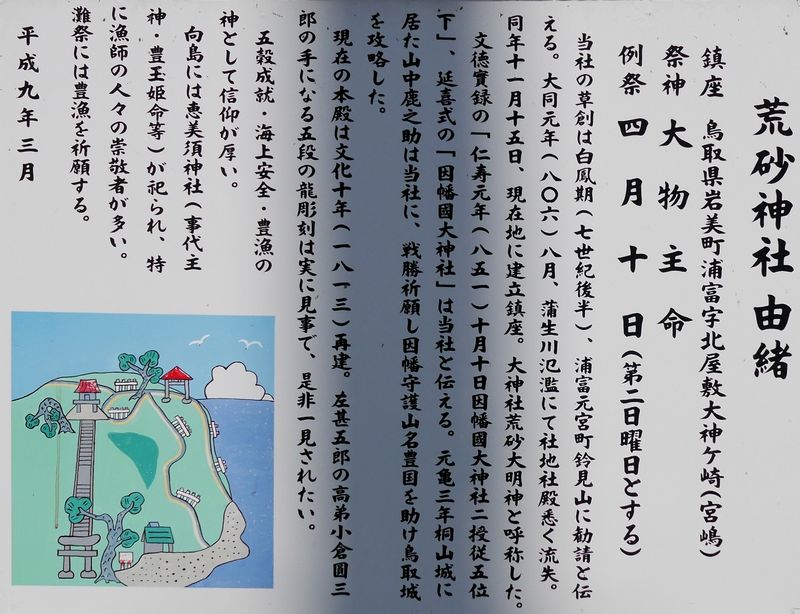 荒砂神社由緒
鎮座　鳥取県岩美町浦富字北屋敷大神ヶ崎(宮嶋)
祭神　大物主命
例祭　四月十日(第二日曜日とする)
当社の草創は白鳳期(七世紀後半)、浦富元宮町鈴見山に勧請と伝
える。大同元年(八〇六)八月、蒲生川氾濫にて社地社殿悉く流失。
同年十一月十五日、現在地に建立鎮座。大神社荒砂大明神と呼称した。
文徳實録の「仁寿元年(八五一)十月十日因幡國大神社二授従五位
下」、延喜式の「因幡國大神社」は当社と伝える。元亀三年桐山城に
居た山中鹿之助は当社に、戦勝祈願し因幡守護山名豊国を助け鳥取城
を攻略した。
現在の本殿は文化十年(一八一三)再建。左甚五郎の高弟小倉圓三
郎の手になる五段の龍彫刻は実に見事で、是非一見されたい。
五穀成就・海上安全・豊漁の
神として信仰が厚い。
向島には恵美須神社(事代主
神・豊玉姫命等)が祀られ、特
に漁師の人々の崇敬者が多い。
灘祭には豊漁を祈願する。
平成九年三月